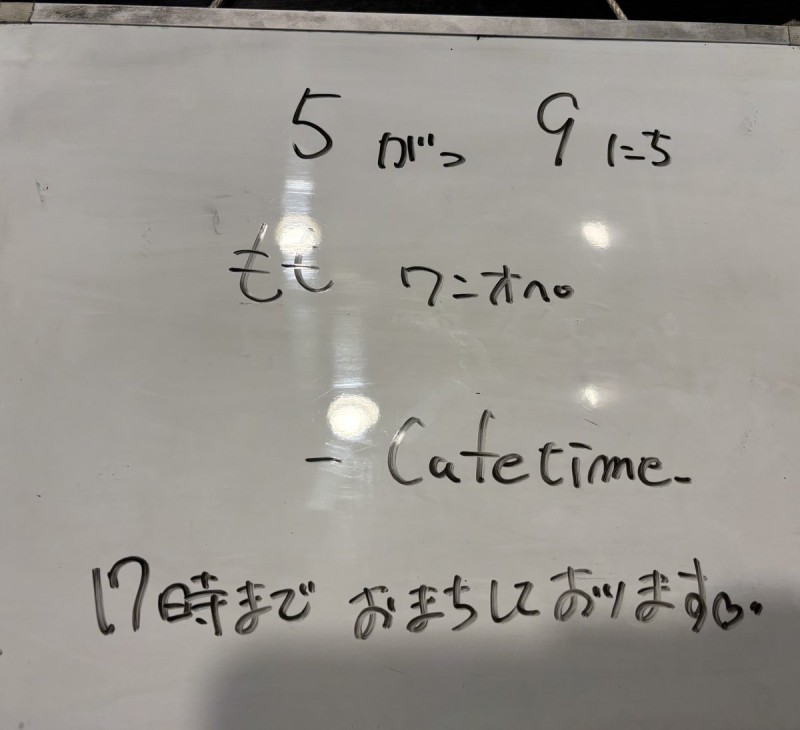 5がつ 9にち
もも ワンオペ。
- Cafetime -
17時まで おまちしております♡.